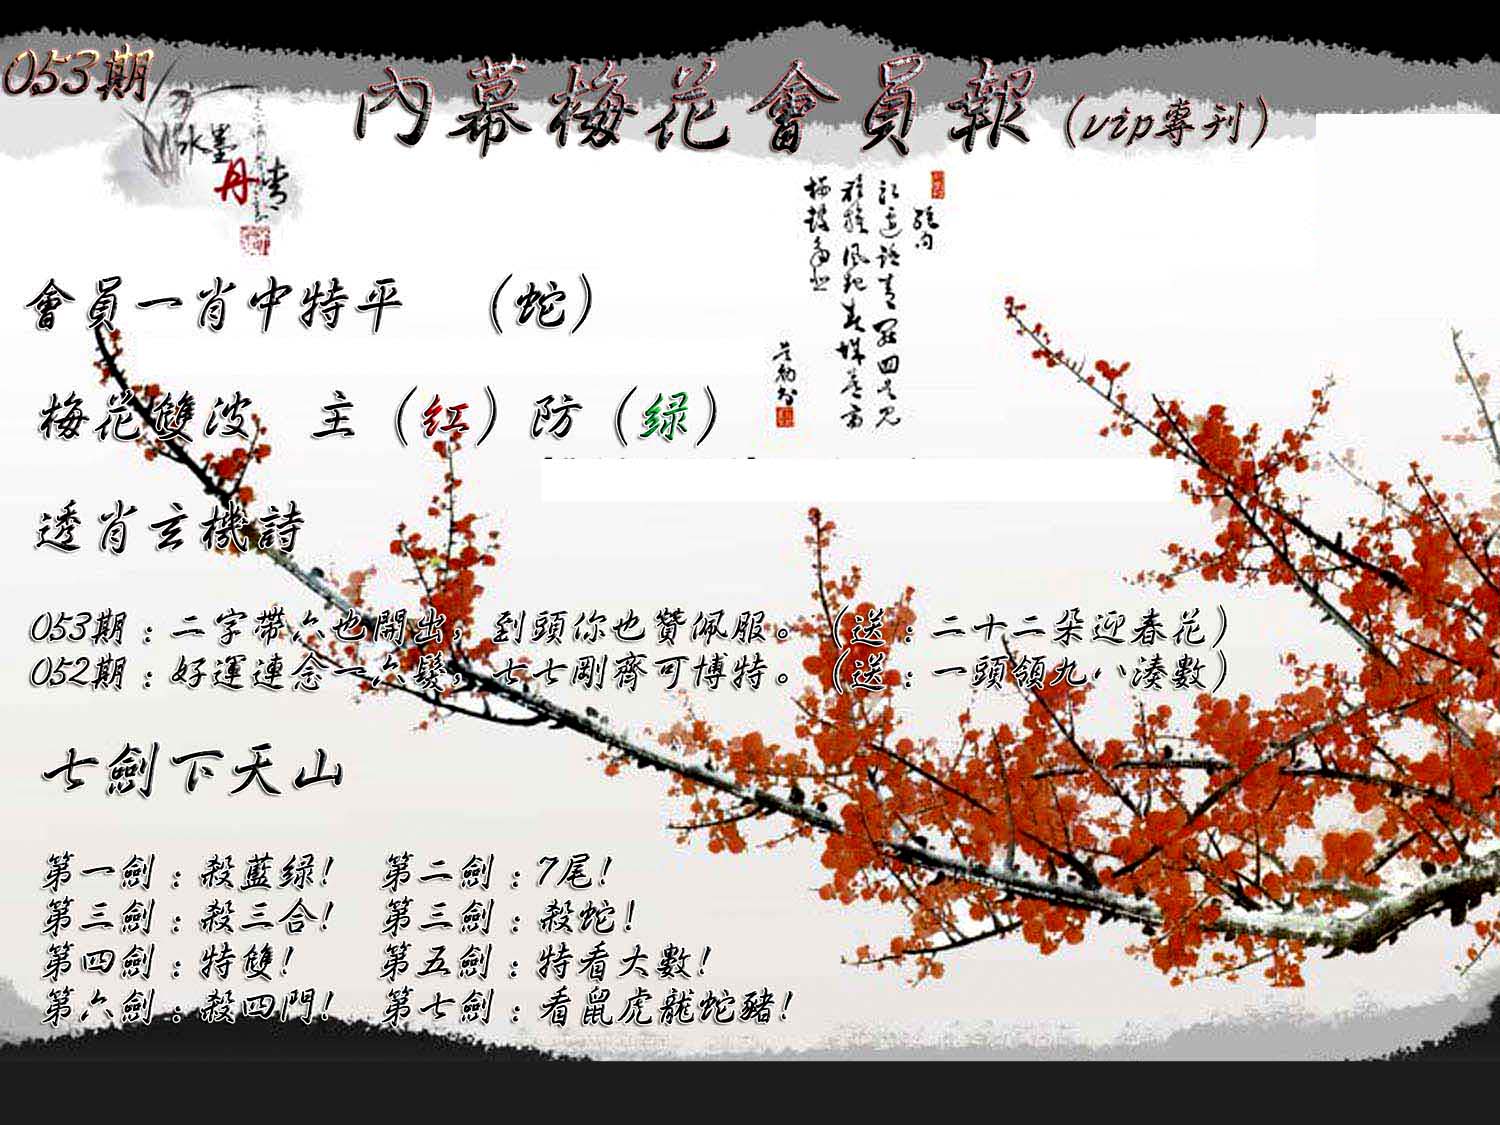 053期
內幕梅花會員報(vip專刊)
水墨
丹青
會員一肖中特平 (蛇)
梅花雙波 主(紅)防(绿)
透肖玄機詩
053期:二字帶六也開出,到頭你也贊佩服。(送:二十二朵迎春花)
052期:好運連念一六發,七七剛齊可博特。(送:一頭領九八湊數)
七劍下天山
第一劍:殺藍绿! 第二劍:7尾!
第三劍:殺三合! 第三劍:殺蛇!
第四劍:特雙! 第五劍:特看大數!
第六劍:殺四門! 第七劍:看鼠虎龍蛇豬!